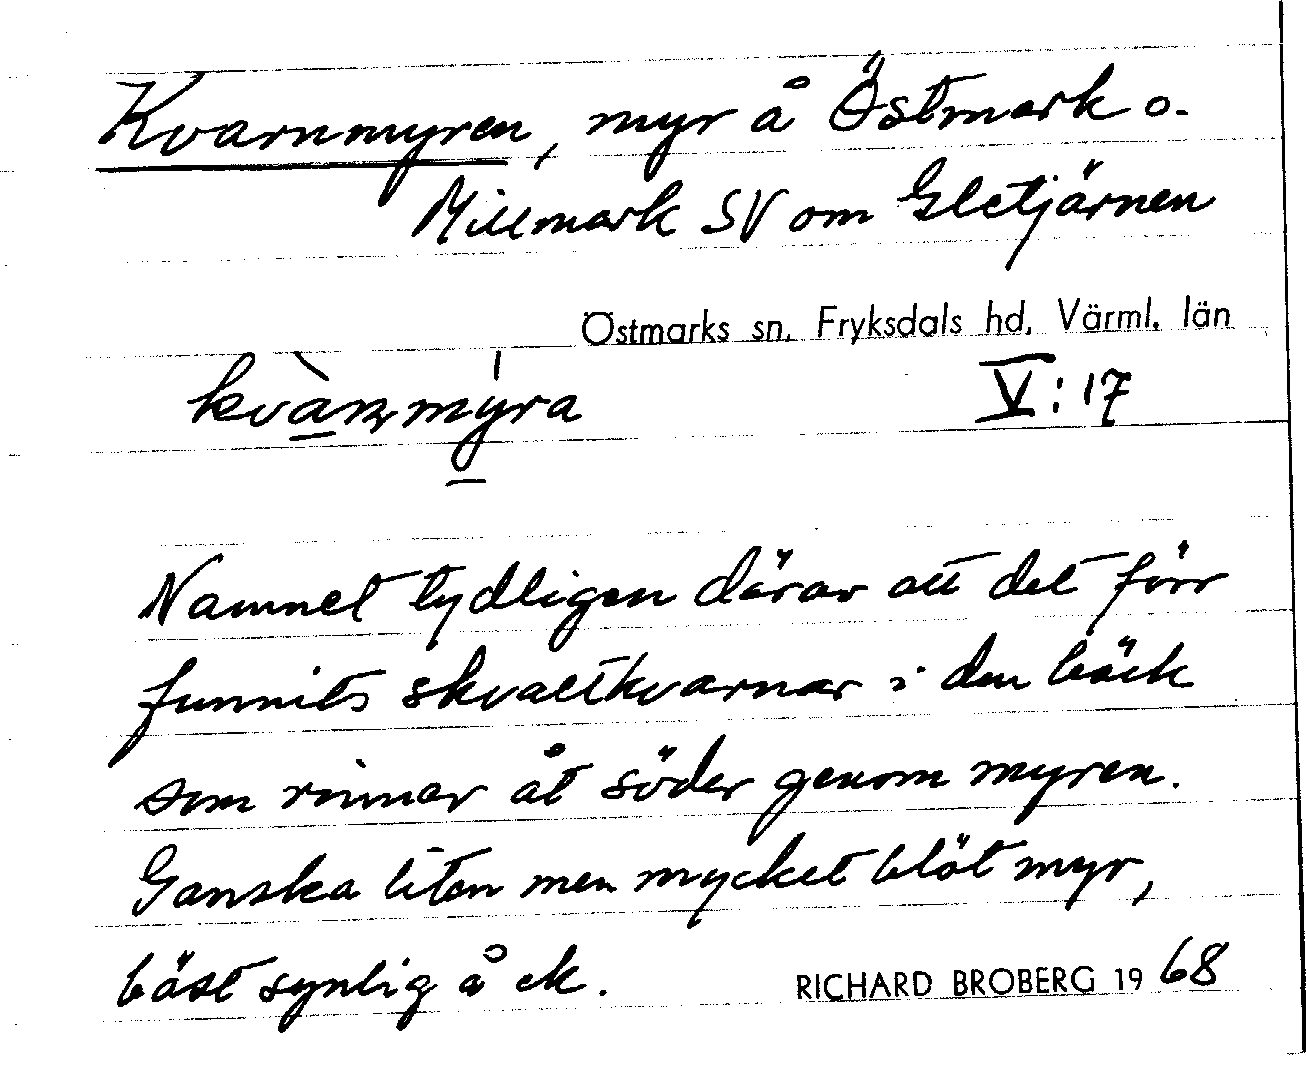 Kvarnmyren, myr å Östmark o.
Millmark SV om Gletjärnen
Östmarks sn, Fryksdals hd, Värml. län
V:17
Namnet tydligen därav att det förr
funnits skvaltkvarnar i den bäck
som rinner åt söder genom myren.
Ganska liten men mycket blöt myr,
bäst synlig å ek.
RICHARD BROBERG 1968